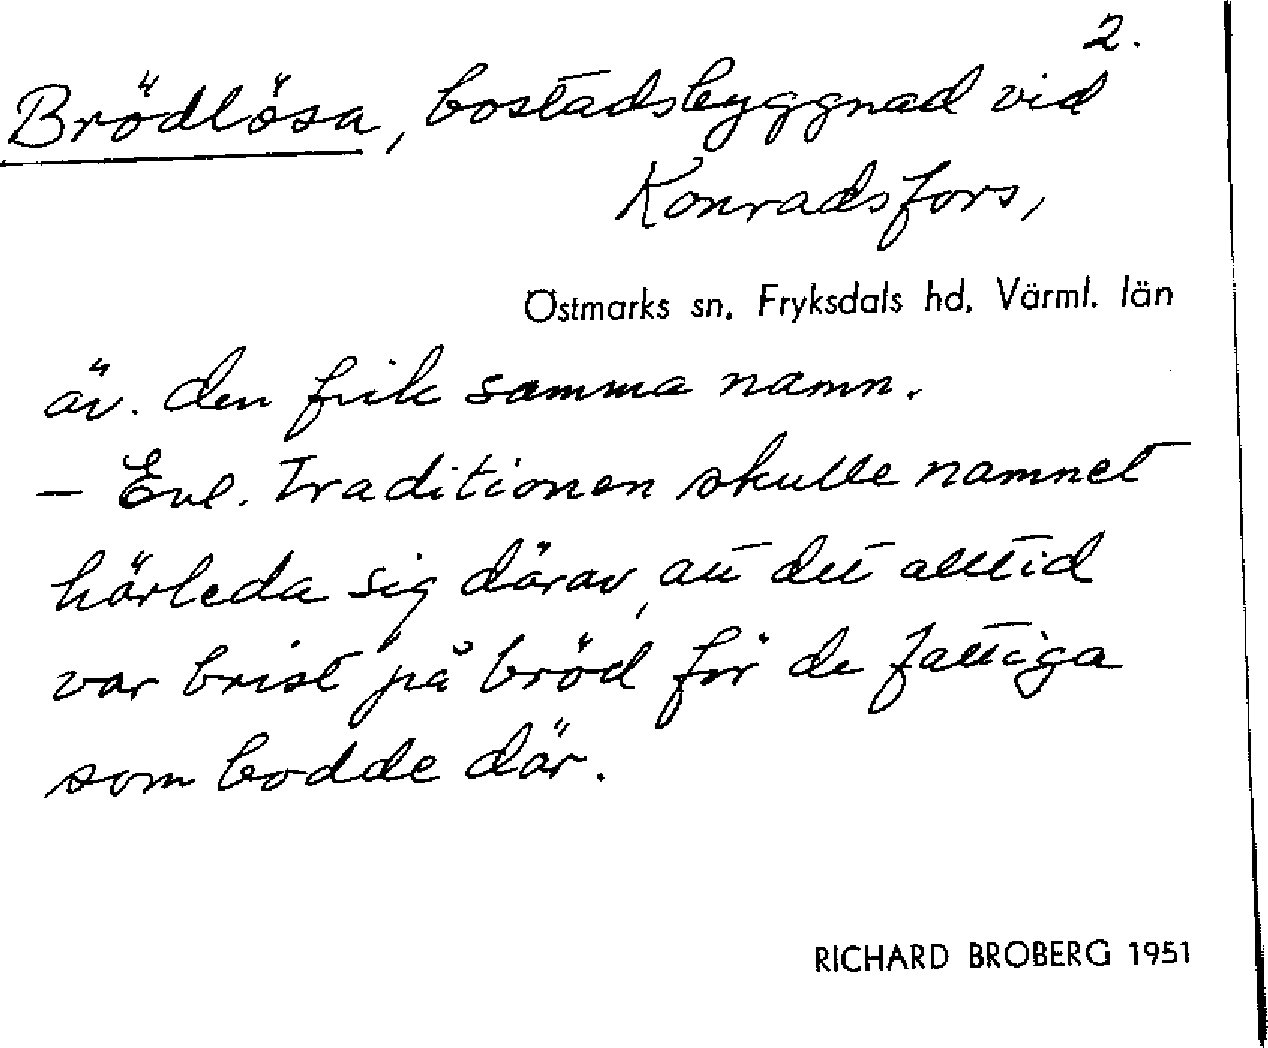 2.
Brödlösa, bostadsbyggnad vid
Konradsfors,
Östmarks sn. Fryksdals hd. Värml. län
äv. den fick samma namn.
– Enl. traditionen skulle namnet
härleda sig därav, att det alltid
var brist på bröd för de fattiga
som bodde där.
RICHARD BROBERG 1951